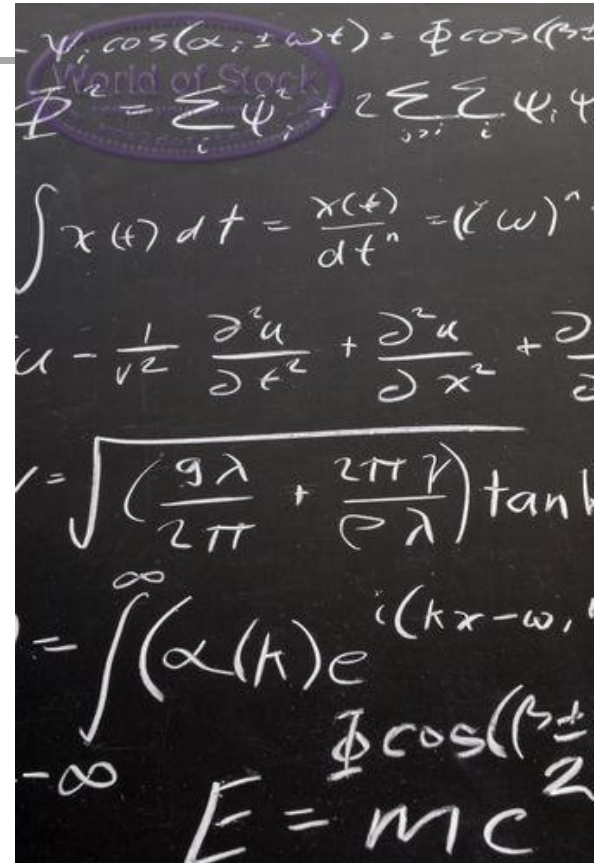 - Ψᵢ cos(αᵢ ± ωt) = Φ cos(β±
World of Stock
Φ² = Σᵢ Ψᵢ² + 2 Σ_{j>i} Σᵢ Ψᵢ Ψ
∫ x(t) dt = x(t)/dtⁿ = (i ω)ⁿ
u - 1/v² ∂²u/∂t² + ∂²u/∂x² + ∂
= √(gλ/2π + 2πγ/ρλ) tanh
= ∫_{-∞}^{∞} (α(k)e^{i(kx-ω,
Φ cos(β±
E = mc²